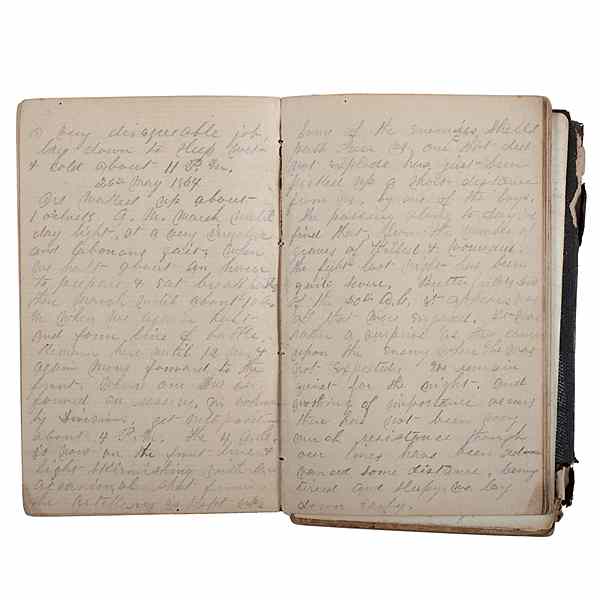 very disagreeable job.
lay down to sleep wet
& cold about 11 P.M.
26th May 1864
Are waked up about
1 o'clock A. M. March until
day light, at a very irregular
and laborous gait; when
we halt about an hour
to prepare & eat breakfast
then March until about
when we again halt
and form line of battle.
Remain here until 12 M. &
again move forward to the
front. When our Div is
formed as reserve, in column
by Division, get into position
about 4 P.M. the 4
is now on the front line &
light skirmishing with an
occasional shot from
the Artillery is kept up.
Some of the enemies shells
pass over us, one that did
not explode has just been
picked up a short distance
from us, by one of the boys.
In passing along to day we
find that, from the number of
graves of Killed & wounded
the fight last night has been
quite severe.
of the 20th A.C. it appears was
all that were engaged. It was
rather a surprise as they came
upon the enemy when he was
not expected. We remain
quiet for the night. and
nothing of importance occurs
there has not been very
much resistance though
our lines have been ad-
vanced some distance, being
tired and sleepy we lay
down early.